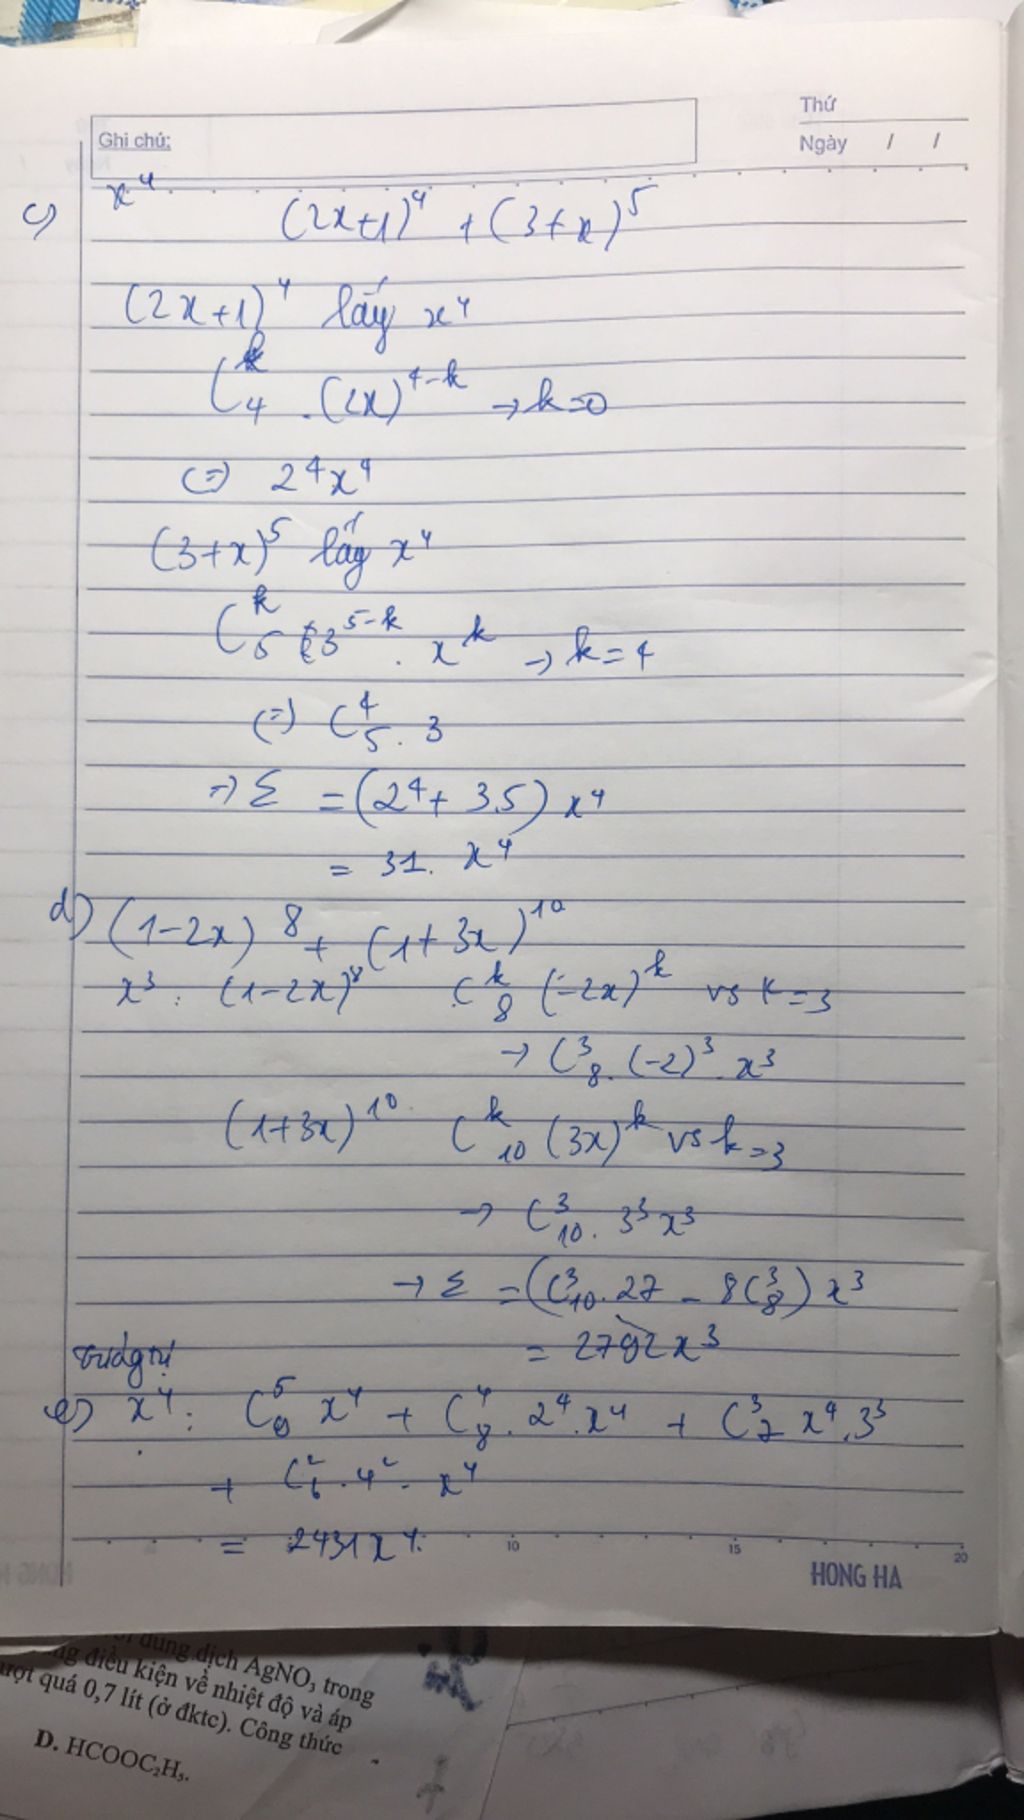 Thứ
Ghi chú:
Ngày / /
c) x^4 (2x+1)^4 + (3+x)^5
(2x+1)^4 lấy x^4
C_4^k . (2x)^{4-k} → k=0
(=) 2^4x^4
(3+x)^5 lấy x^4
C_5^k 3^{5-k} . x^k → k=4
(=) C_5^4 . 3
=> Σ = (2^4 + 3.5) x^4
= 31. x^4
d) (1-2x)^8 + (1+3x)^10
x^3 : (1-2x)^8 C_8^k (-2x)^k vs k=3
→ C_8^3 . (-2)^3 . x^3
(1+3x)^10 C_10^k (3x)^k vs k=3
→ C_10^3 . 3^3 x^3
→ Σ = (C_10^3 . 27 - 8C_8^3) x^3
= 2792x^3
tương tự
e) x^4 : C_9^5 x^4 + C_8^4 . 2^4 . x^4 + C_7^3 x^4 . 3^3
+ C_6^2 . 4^2 . x^4
= 2431x^4.
10 15 20
HONG HA
dung dịch AgNO₃ trong
điều kiện về nhiệt độ và áp
quá 0,7 lít (ở đktc). Công thức
D. HCOOC₂H₅.